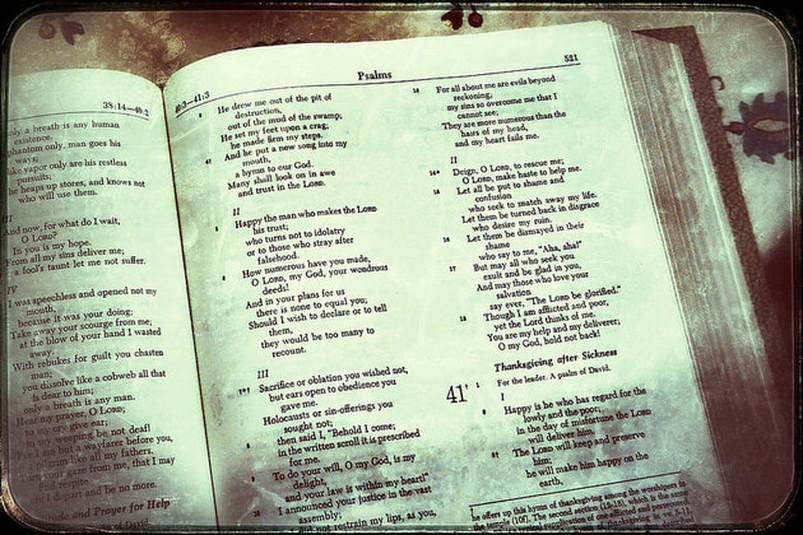 38:14—40:2
only a breath is any human
existence.
phantom only, man goes his
ways;
like vapor only are his restless
pursuits;
he heaps up stores, and knows not
who will use them.
III
And now, for what do I wait,
O LORD?
In you is my hope.
From all my sins deliver me;
a fool's taunt let me not suffer.
IV
I was speechless and opened not my
mouth,
because it was your doing;
Take away your scourge from me;
at the blow of your hand I wasted
away.
With rebukes for guilt you chasten
man;
you dissolve like a cobweb all that
is dear to him;
only a breath is any man.
Hear my prayer, O LORD;
to my cry give ear;
to my weeping be not deaf!
I am but a wayfarer before you,
a pilgrim like all my fathers.
your gaze from me, that I may
find respite
I depart and be no more.
and Prayer for Help
of David.
40:3—41:3
Psalms
521
He drew me out of the pit of
destruction,
out of the mud of the swamp;
He set my feet upon a crag;
he made firm my steps.
And he put a new song into my
mouth,
a hymn to our God.
Many shall look on in awe
and trust in the LORD.
II
Happy the man who makes the LORD
his trust;
who turns not to idolatry
or to those who stray after
falsehood.
How numerous have you made,
O LORD, my God, your wondrous
deeds!
And in your plans for us
there is none to equal you;
Should I wish to declare or to tell
them,
they would be too many to
recount.
III
Sacrifice or oblation you wished not,
but ears open to obedience you
gave me.
Holocausts or sin-offerings you
sought not;
then said I, "Behold I come;
in the written scroll it is prescribed
for me.
To do your will, O my God, is my
delight,
and your law is within my heart!"
I announced your justice in the vast
assembly;
did not restrain my lips, as you,
For all about me are evils beyond
reckoning;
my sins so overcome me that I
cannot see;
They are more numerous than the
hairs of my head,
and my heart fails me.
II
Deign, O LORD, to rescue me;
O LORD, make haste to help me.
Let all be put to shame and
confusion
who seek to snatch away my life.
Let them be turned back in disgrace
who desire my ruin.
Let them be dismayed in their
shame
who say to me, "Aha, aha!"
But may all who seek you
exult and be glad in you,
And may those who love your
salvation
say ever, "The LORD be glorified."
Though I am afflicted and poor,
yet the Lord thinks of me.
You are my help and my deliverer;
O my God, hold not back!
Thanksgiving after Sickness
41 1 For the leader. A psalm of David.
I
Happy is he who has regard for the
lowly and the poor;
in the day of misfortune the LORD
will deliver him.
The LORD will keep and preserve
him;
he will make him happy on the
earth,
he offers up this hymn of thanksgiving among the worshipers in
the temple (10f). The second section (12-18), which is the same
supplication of one afflicted and persecuted
of thanksgiving, as vv. 5-11,